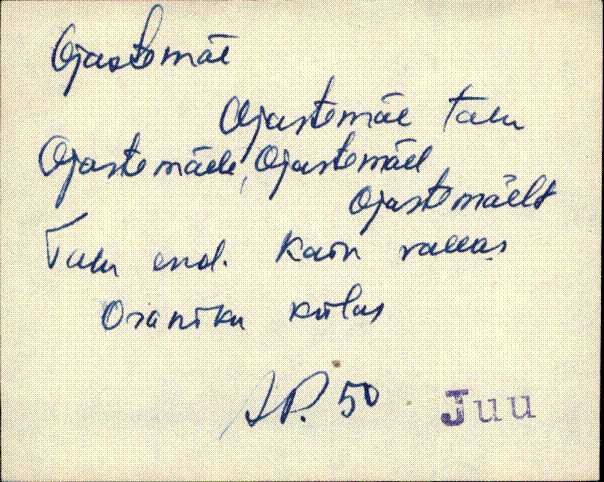 Ojastemäe
Ojastemäe talu
Ojastemäele, Ojastemäel
Ojastemäelt
Talu end. Kaiu vallas
Oraniku külas
50 Juu